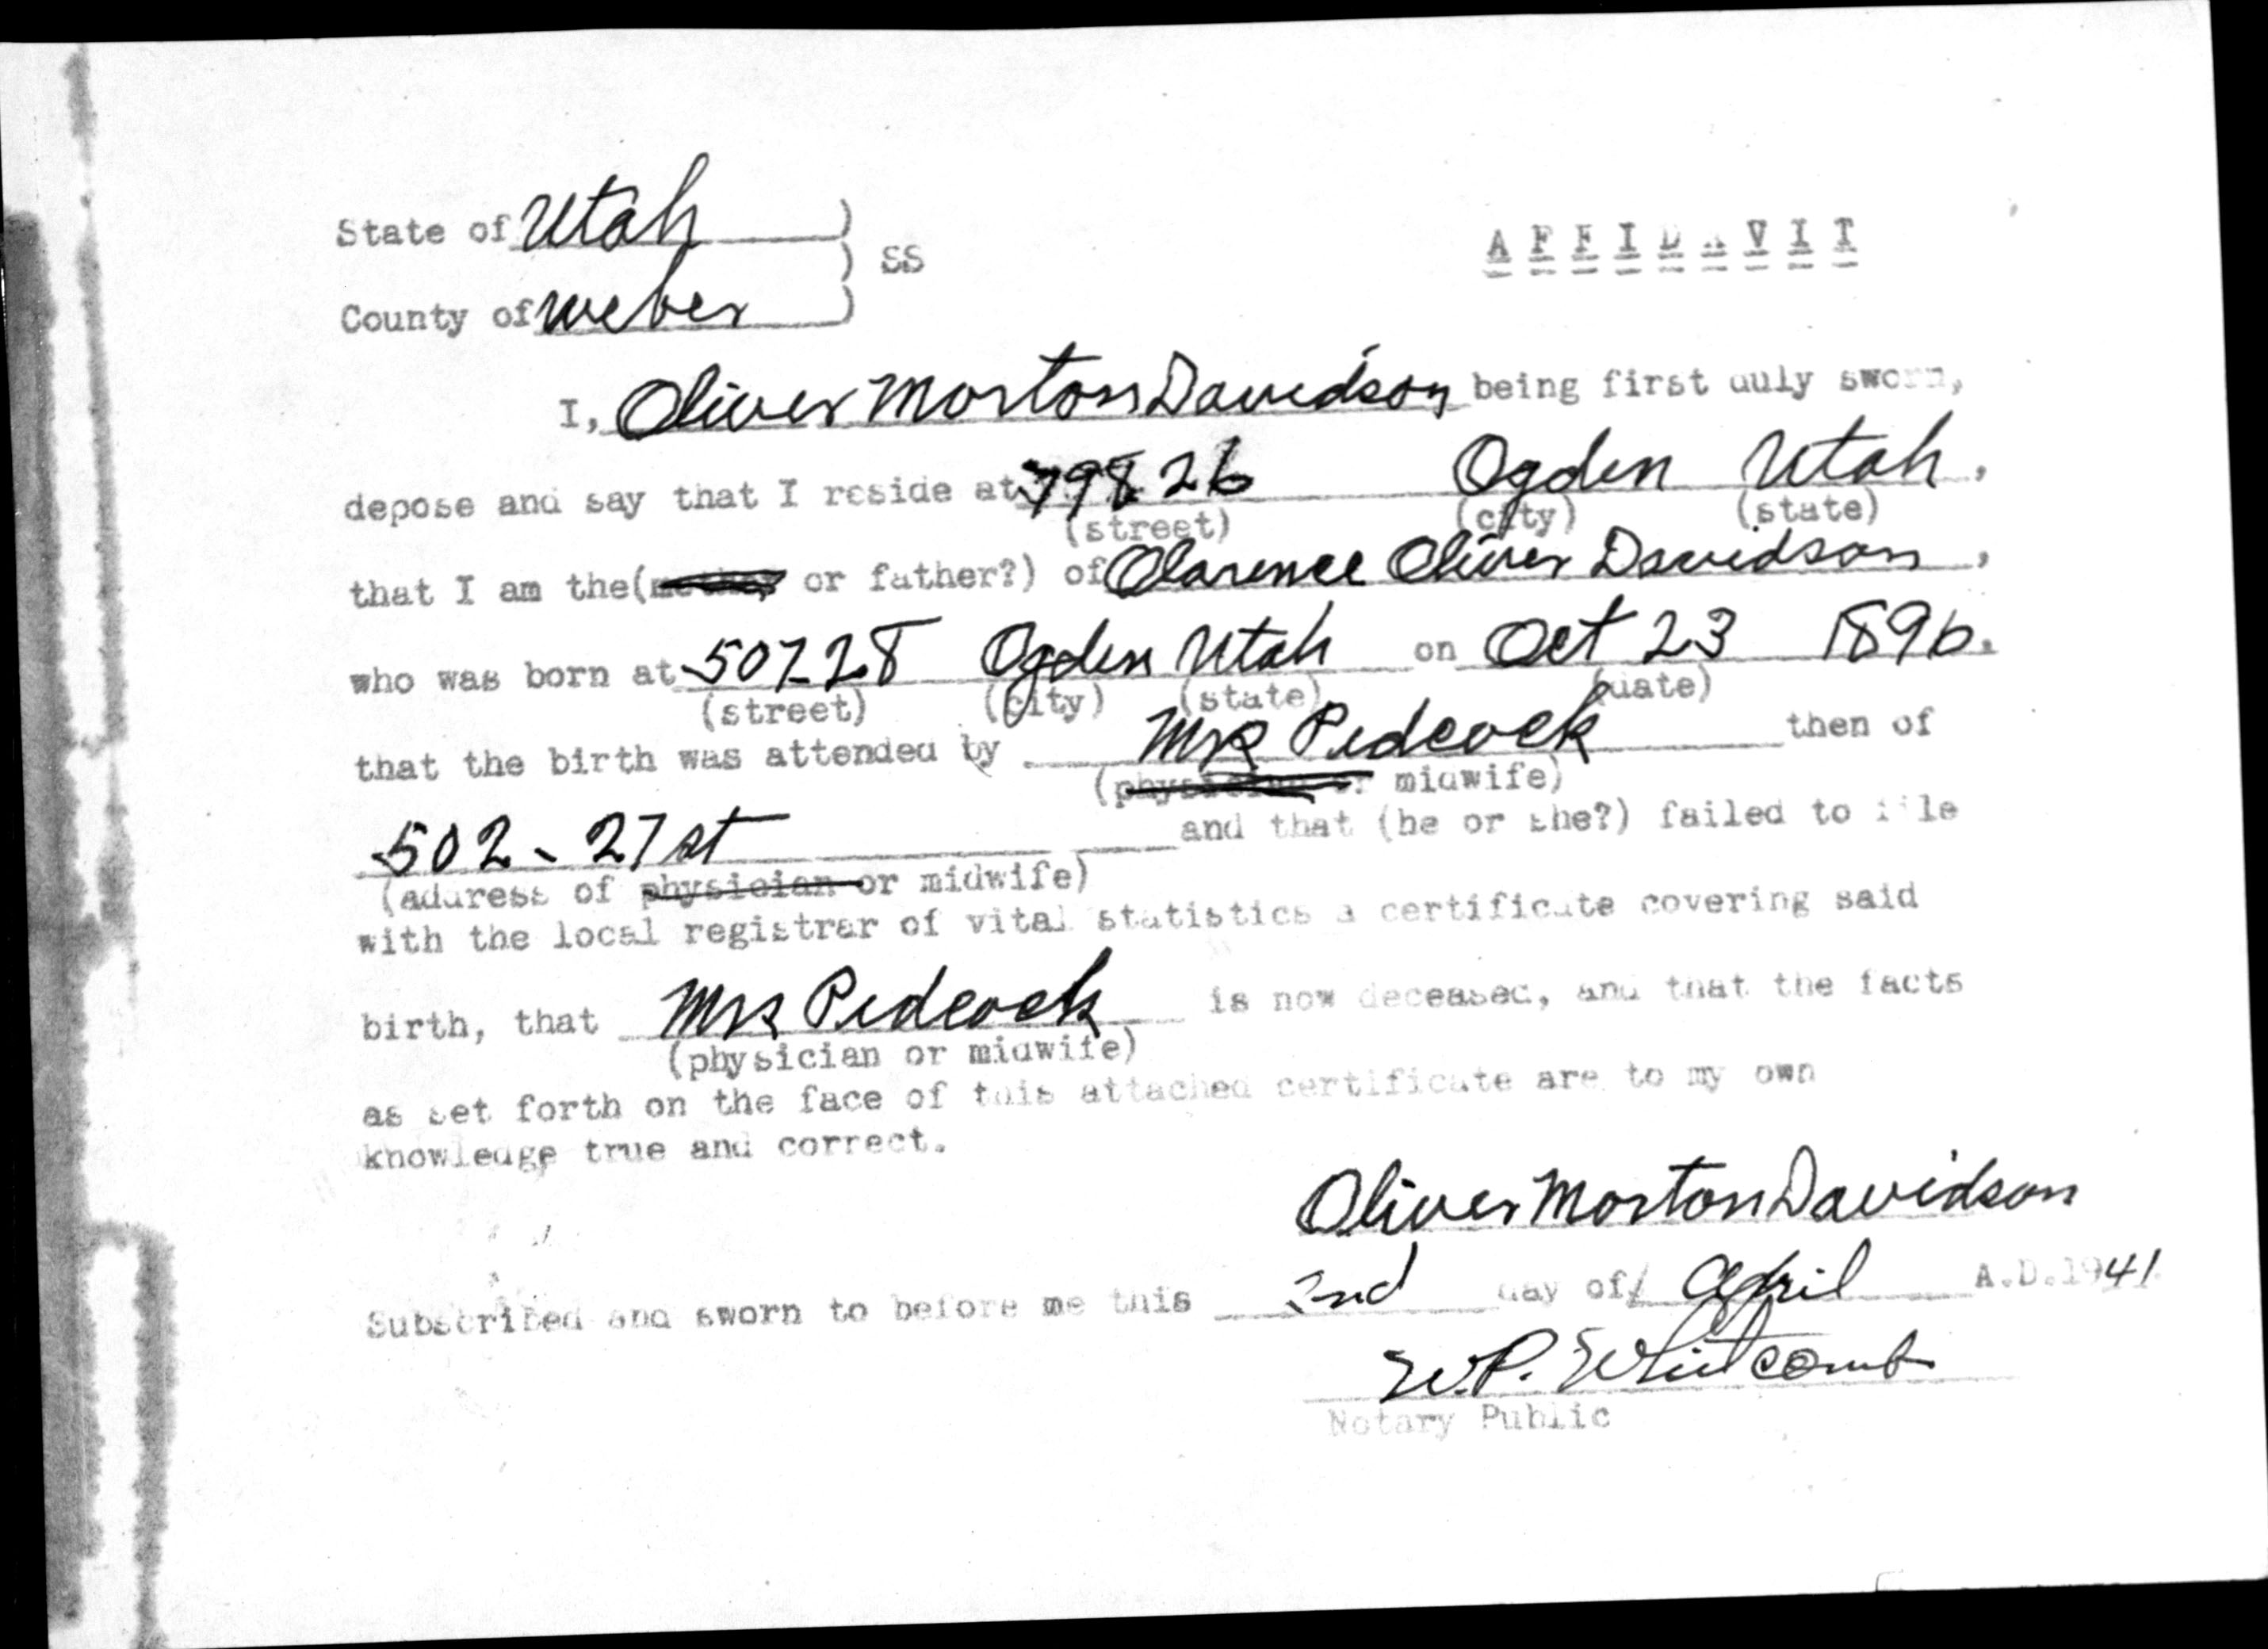 State of Utah )
) SS
AFFIDAVIT
County of Weber )
I, Oliver Morton Davidson being first duly sworn,
depose and say that I reside at 798 26 Ogden Utah.
(street) (city) (state)
that I am the( or father?) of Clarence Oliver Davidson,
who was born at 507 28 Ogden Utah on Oct 23 1896.
(street) (city) (state) (date)
that the birth was attended by Mrs Pedcock then of
(physician or midwife)
502 - 27 st and that (he or she?) failed to file
(address of physician or midwife)
with the local registrar of vital statistics a certificate covering said
birth, that Mrs Pedcock is now deceased, and that the facts
(physician or midwife)
as set forth on the face of this attached certificate are to my own
knowledge true and correct.
Oliver Morton Davidson
Subscribed and sworn to before me this 2nd day of April A.D.1941
W.P. Whitcomb
Notary Public